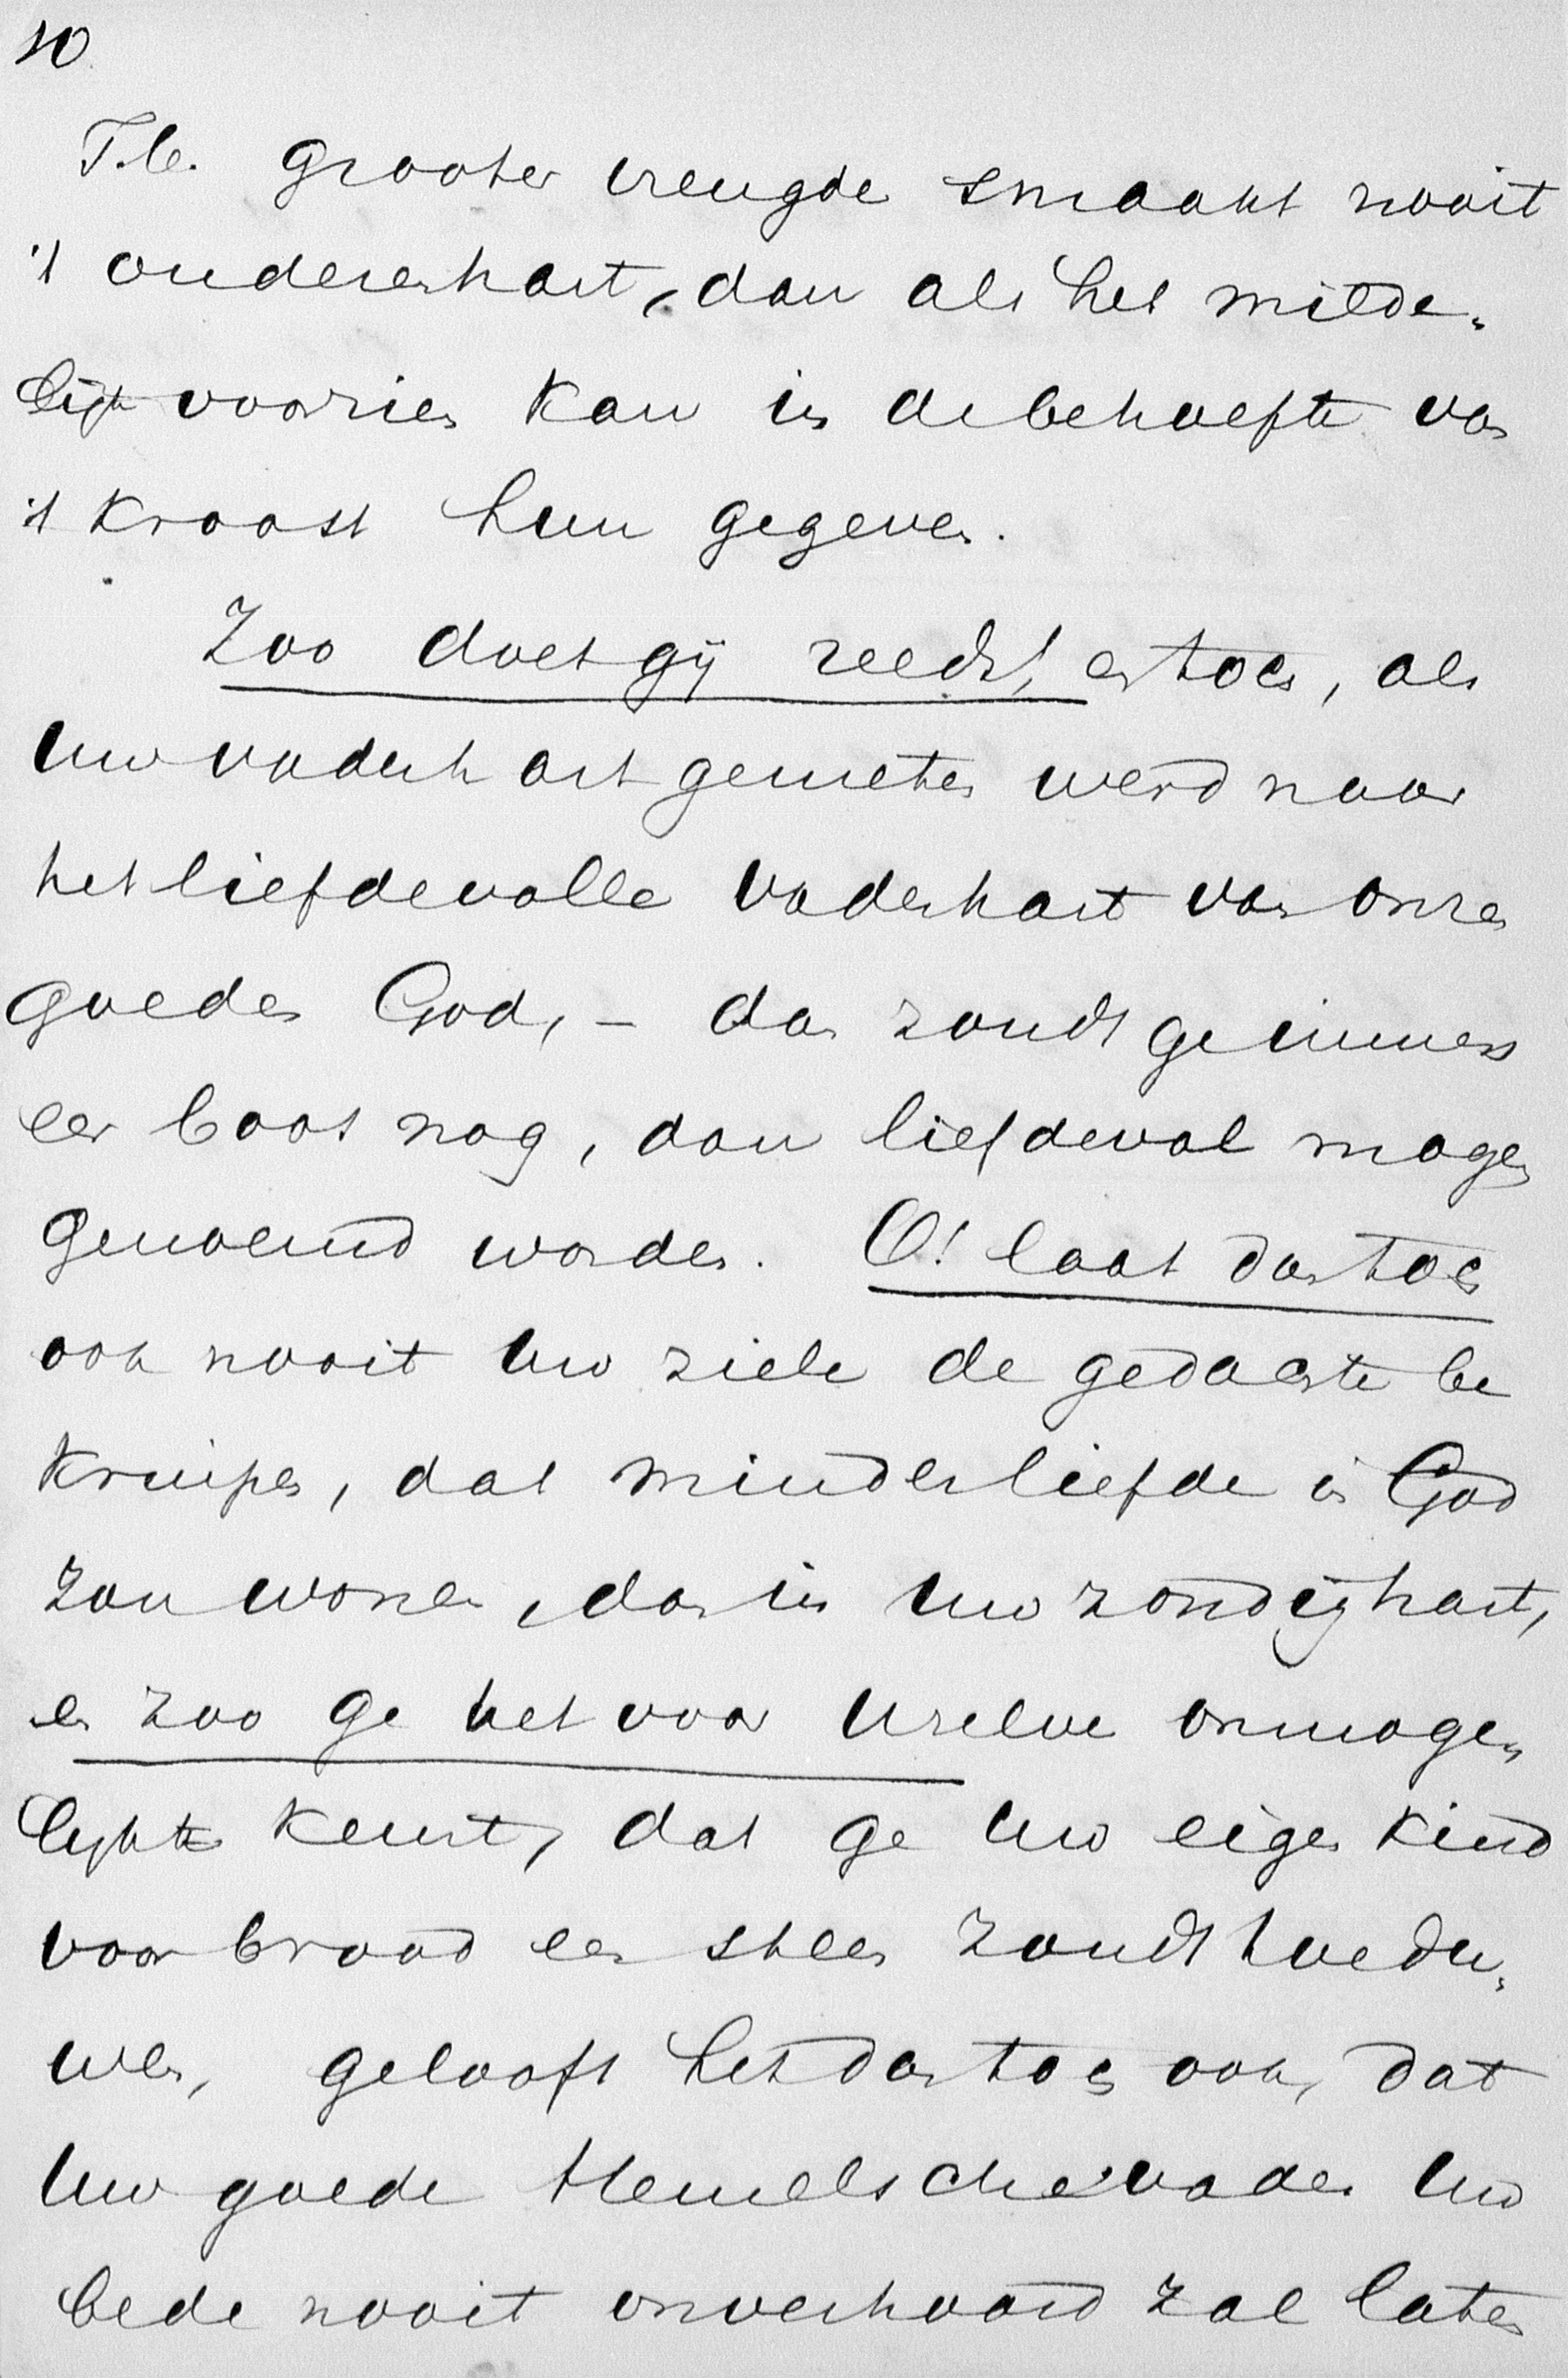 10
T.C. grooter vreugde smaakt nooit
't ouderenhart, dan als het milde-
lijk voorzien kan in de behoefte van
't kroost hun gegeven.
Zoo doet gij reeds! en toch, als
Uw vaderhart gemeten werd naar
het liefdevolle vaderhart van onzen
goeden God, – dan zoudt ge immers
eer boos nog, dan liefdevol mogen
genoemd worden. O! laat dan toch
ook nooit Uw ziele de gedachte be
kruipen, dat minder liefde in God
zou wonen, dan in Uw zondig hart,
en zoo ge het voor Uzelve onmoge-
lijk kent, dat ge Uw eigen kind
voor brood een steen zoudt toedu-
wen, gelooft het dan toch ook, dat
Uw goede Hemelsche vader Uw
bede nooit onverhoord zal laten